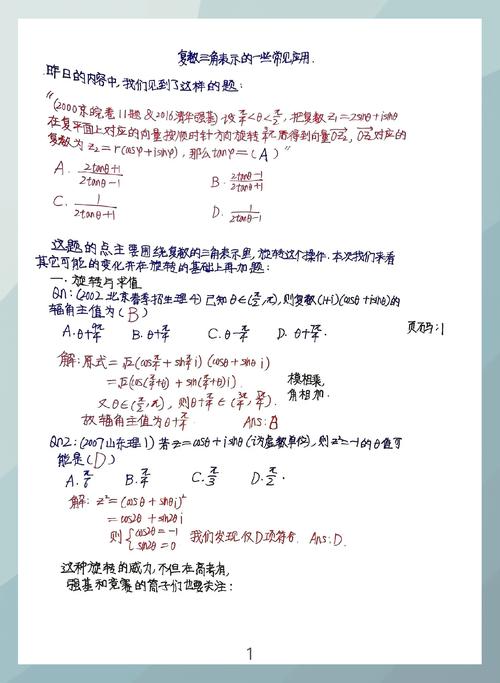 复数三角表示的一些常见应用.
昨日的内容中,我们见到了这样的题:
“(2000京皖卷11题&2016清华强基)设π/4<θ<π/2,把复数z₁=2sinθ+isinθ
在复平面上对应的向量按顺时针方向旋转3π/4后得到向量OZ₂,OZ₂对应的
复数为z₂=r(cosφ+isinφ),那么tanφ=(A)”
A. 2tanθ+1/2tanθ-1 B. 2tanθ-1/2tanθ+1
C. 1/2tanθ+1 D. 1/2tanθ-1
这题的点主要围绕复数的三角表示里,旋转这个操作.本次我们来看
其它可能的变化并在旋转的基础上再加题:
一.旋转与求值
QN1:(2002北京春季招生理4)已知θ∈(π/2,π),则复数(1+i)(cosθ+isinθ)的
辐角主值为(B)
A.θ+9π/4 B.θ+π/4 C.θ-π/4 D.θ+7π/4.
页码:1
解:原式=√2(cosπ/4+sinπ/4i)(cosθ+sinθi)
=√2(cos(π/4+θ)+sin(π/4+θ)i).
模相乘,
角相加.
又θ∈(π/2,π),则θ+π/4∈(3π/4,5π/4).
故辐角主值为θ+π/4 Ans:B
QN2:(2007山东理1)若z=cosθ+isinθ(i为虚数单位),则z²=-1的θ值可
能是(D)
A.π/6 B.π/4 C.π/3 D.π/2.
解:z²=(cosθ+sinθi)²
=cos2θ+sin2θi
则{cos2θ=-1
sin2θ=0 我们发现仅D项符合. Ans:D.
这种旋转的威力,不但在高考有,
强基和竞赛的筒子们也要关注:
1